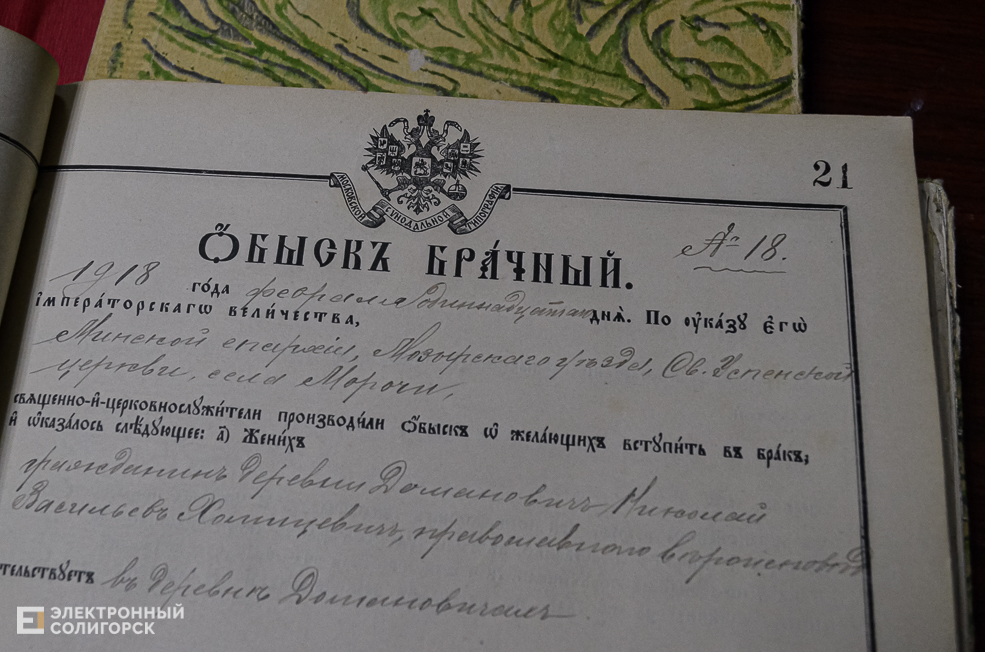 21
МОСКОВСКОЙ СѴНОДАЛЬНОЙ ТИПОГРАФІИ
Ѻ҆БЫСКЪ БРА́ЧНЫЙ.
№ 18.
1918 го́да февраля одиннадцатаго днѧ̀. По ᲂу҆ка́зꙋ є҆гѡ̀
і҆мпера́торскагѡ вели́чества,
Минской епархіи, Мозырскаго уѣзда, Св. Успенской
церкви, села Морочи,
свѧще́нно-и҆-церковнослꙋжи́тели произво́дили ѻ҆́быскъ ѡ҆ жела́ющихъ встꙋпи́ть въ бра́къ;
и҆ ѡ҆каза́лось слѣ́дꙋющее: а҃) Жени́хъ
гражданинъ деревни Домановичъ Николай
Васильевъ Хомицевичъ, православнаго вѣроисповѣд
тельствꙋетъ въ деревнѣ Домановичахъ.
ЭЛЕКТРОННЫЙ
СОЛИГОРСК